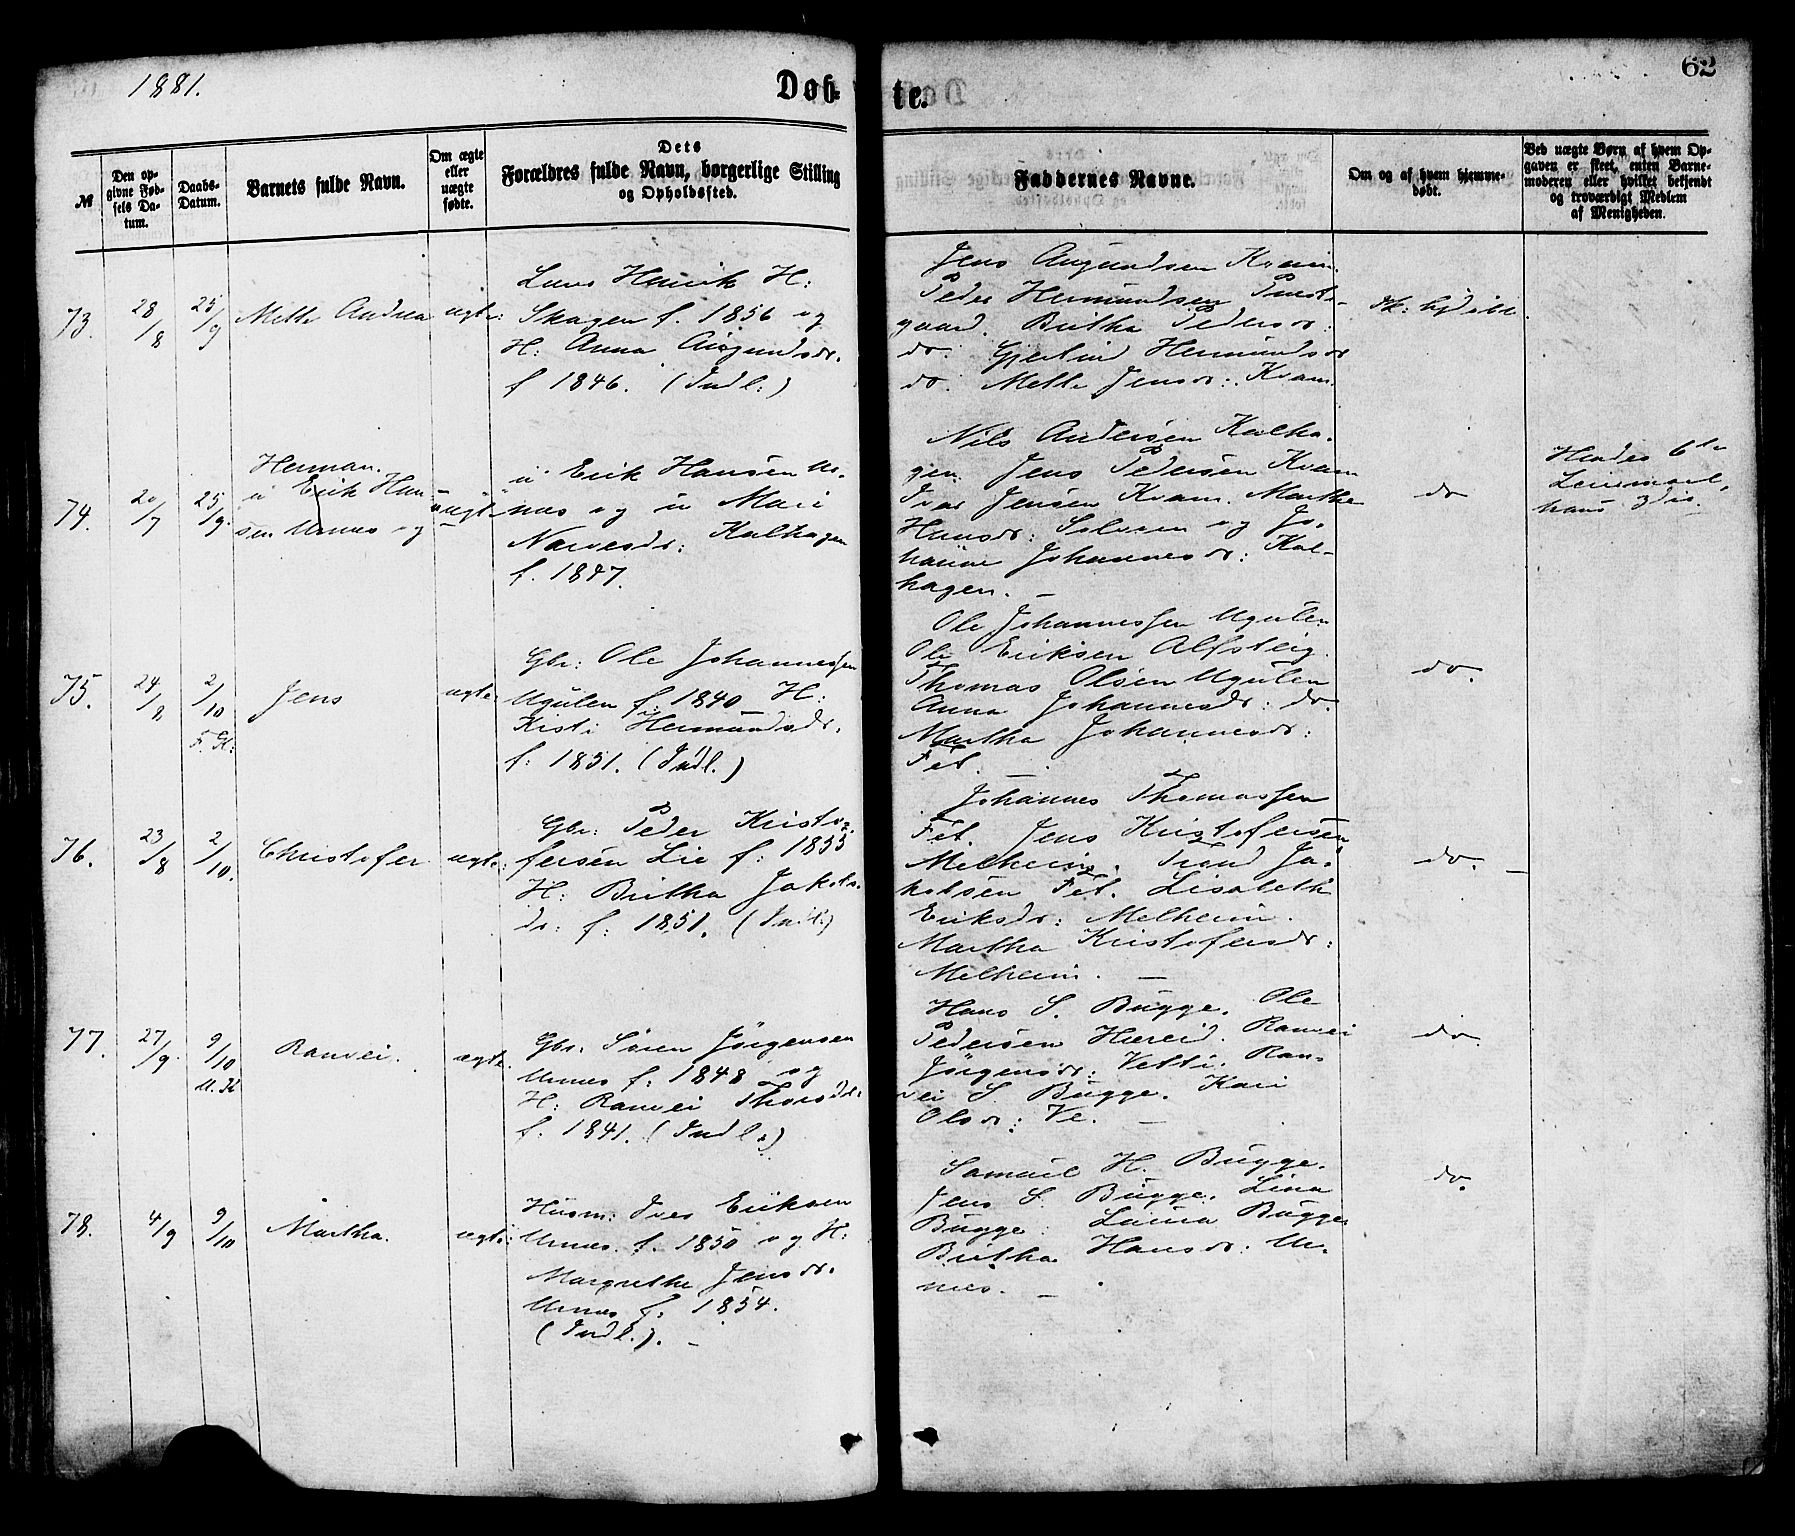 1881.
Døbte.
62
№
Den op-
givne Fød-
sels Da-
tum.
Daabs-
Datum.
Barnets fulde Navn.
Om ægte
eller
uægte
fødte.
Dets
Forældres fulde Navn, borgerlige Stilling
og Opholdssted.
Faddernes Navne.
Om og af hvem hjemme-
døbt.
Ved uægte Børn af hvem Op-
gaven er skeet, enten Barne-
moderen eller hvilket bekjendt
og troværdigt Medlem
af Menigheden.
73.
28/8
25/9
Mette Andrea
ægte:
Lars Henrik H:
Skagen f. 1856 og
H: Anna Augundsdr.
f 1846. (Indl:)
Jens Augundsen Kvam.
Peder Hermundsen Præst-
gaard. Britha Pedersdr:
do. Gjertrud Hermundsdr
do. Mette Jensdr: Kvam.
74.
20/7
25/9.
Herman.
u Erik Han-
sen Urnes og
uægte
u Erik Hansen Ur-
nes og u Mari
Narvesdr: Kalhagen
f. 1847.
Nils Andersen Kalha-
gen. Jens Pedersen Kvam
Ivar Jensen Kvam. Marthe
Hansdr: Solveien og Jo-
hanne Johannesdr: Kal-
hagen. –
do
Hendes 6te
Leiermaal,
hans 3die.
75.
24/8
2/10
F. K:
Jens
ægte.
Gbr: Ole Johannessen
Ugulen f. 1840 H:
Kisti Hermundsdr.
f: 1851. (Indl.)
Ole Johannessen Ugulen
Ole Eriksen Alfsteig.
Thomas Olsen Ugulen
Anna Johannesdr: do.
Martha Johannesdr:
Fet. –
do.
76.
23/8
2/10.
Christofer
ægte:
Gbr: Peder Kristo-
fersen Lie f: 1855
H: Britha Jakobs-
dr: f: 1851. (Indl:)
Johannes Thomassen
Fet. Jens Kristofersen
Melheim. Trond Ja-
kobsen Fet. Lisabeth
Eriksdr: Melheim.
Martha Kristofersdr:
Melheim. –
do. –
77.
27/9.
9/10
U. K
Ranvei.
ægte.
Gbr: Søren Jørgensen
Urnes f: 1848 og
H: Ranvei Thorsdr:
f. 1841. (Indl:)
Hans S. Bugge. Ole
Pedersen Hæreid. Ranvei
Jørgensdr: Vetti. Ran-
vei S. Bugge. Kari
Olsdr: Ve. –
do.
78.
4/9
9/10
Martha.
ægte:
Husm: Iver Eriksen
Urnes. f. 1850 og H:
Margrethe Jensdr.
Urnes f. 1854.
(Indl.). –
Samuel H. Bugge.
Jens S. Bugge. Lina
Bugge. Laura Bugge
Britha Hansdr: Ur-
nes. –
do.